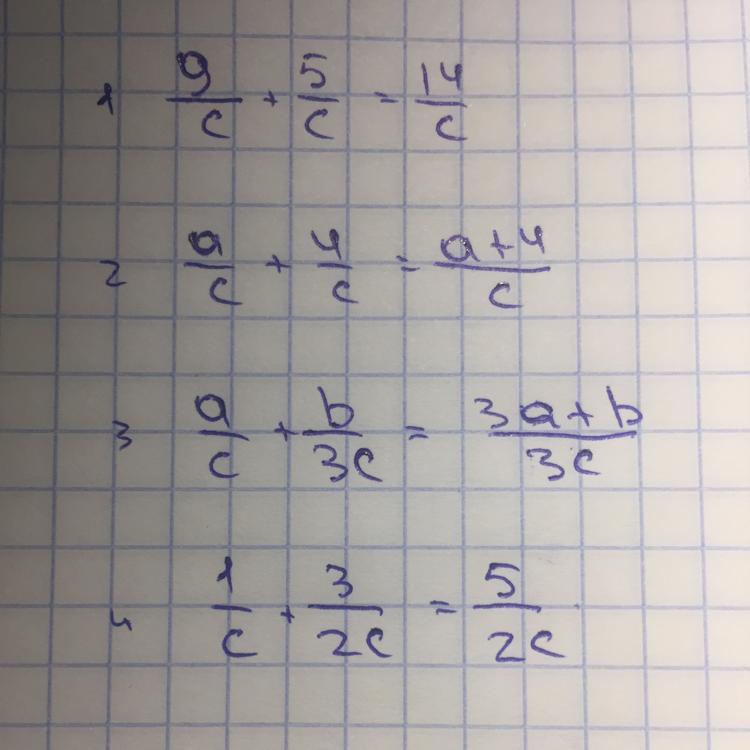 1 9/c + 5/c = 14/c
2 a/c + 4/c = a+4/c
3 a/c + b/3c = 3a+b/3c
4 1/c + 3/2c = 5/2c